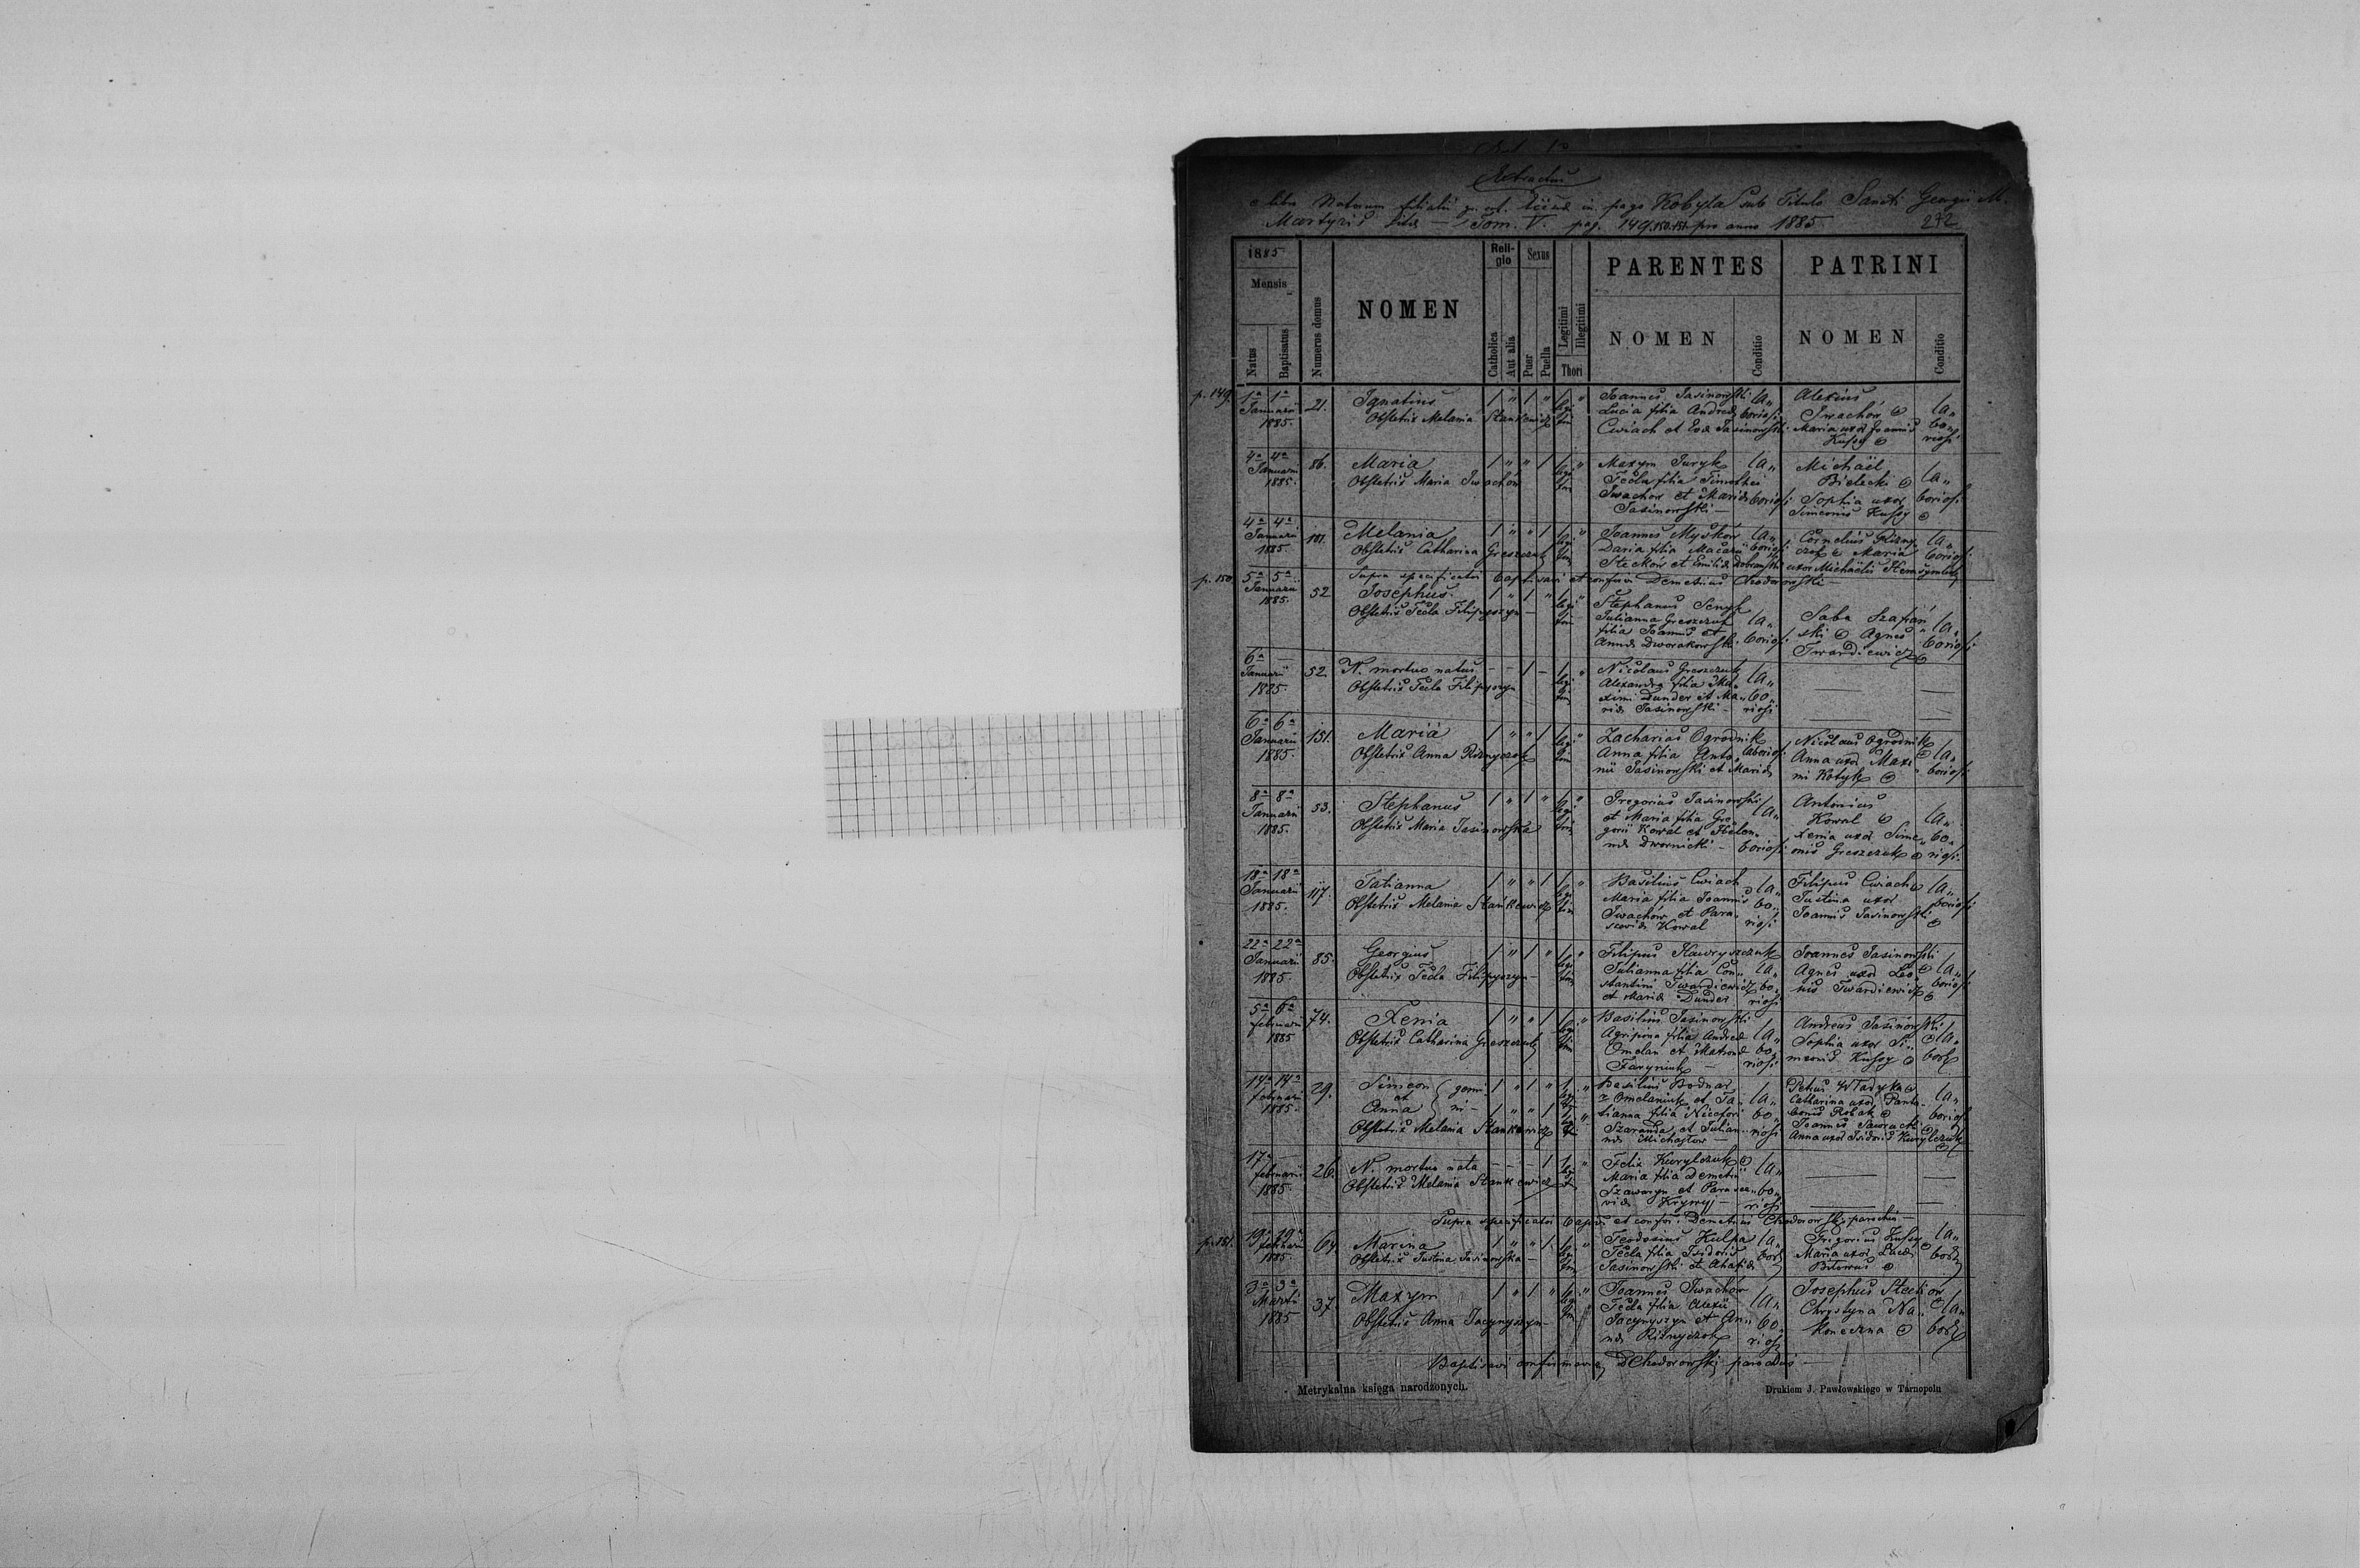 Extractus
e libro Natorum filialis gr. cat. in pago Kobyla sub Titulo Sancti Georgii M.
Martyris Tom. V. pag. 149. 150. 151. pro anno 1885 242
1885
Mensis
Natus
Baptisatus
Numerus domus
NOMEN
Religio
Catholica
Aut alia
Sexus
Puer
Puella
Legitimi
Illegitimi
Thori
PARENTES
NOMEN
Conditio
PATRINI
NOMEN
Conditio
p. 149.
1a 1a
Januarii
1885.
21.
Ignatius
Obstetrix Melania Stankewicz
Joannes Jasinowski
Lucia filia Andreae
Cwiach et Evae Jasinowski
laboriosi
Alexius
Iwachów
Maria uxor Joannis
Kussy
laboriosi
4a 4a
Januarii
1885.
86.
Maria
Obstetrix Maria Iwachów
Maxym Juryk
Tecla filia Timothei
Iwachów et Mariae
Jasinowski
laboriosi
Michaël
Bielecki
Sophia uxor
Simeonis Kussy
laboriosi
4a 4a
Januarii
1885.
101.
Melania
Obstetrix Catharina Greszczuk
Joannes Myśków
Daria filia Macarii
Steckow et Emiliae Dobranski
laboriosi
Cornelius Rizny
czok et Maria
uxor Michaëlis
laboriosi
p. 150.
Supra specificatos baptisavi et confirmavi Demetrius Chodorowski
5a 5a
Januarii
1885.
52
Josephus
Obstetrix Tecla Filipyszyn
Stephanus Senyk
Julianna Greszczuk
filia Joannis et
Annae Dworakowski
laboriosi
Saba Szafrań
ski Agnes
Twardiewicz
laboriosi
6a
Januarii
1885.
52.
N. mortuo natus
Obstetrix Tecla Filipyszyn
Nicolaus Greszczuk
Alexandra filia Ma
ximi Dunder et Ma
riae Jasinowski
laboriosi
6a 6a
Januarii
1885.
151.
Maria
Obstetrix Anna Riznyczok
Zacharias Ogrodnik
Anna filia Anto
nii Jasinowski et Mariae
laboriosi
Nicolaus Ogrodnik
Anna uxor Maxi
mi Kotyk
laboriosi
8a 8a
Januarii
1885.
53.
Stephanus
Obstetrix Maria Jasinowska
Gregorius Jasinowski
et Maria filia Gre
gorii Kowal et Hele
nae Dwornicki
laboriosi
Antonius
Kowal
Xenia uxor Sime
onis Greszczuk
laboriosi
18a 18a
Januarii
1885.
117.
Tatianna
Obstetrix Melania Stankewicz
Basilius Cwiach
Maria filia Joannis
Iwachów et Para
scevae Kowal
laboriosi
Filipus Cwiach
Justina uxor
Joannis Jasinowski
laboriosi
22a 22a
Januarii
1885.
85.
Georgius
Obstetrix Tecla Filipyszyn
Filipus Hawryszczuk
Julianna filia Con
stantini Twardiewicz
et Mariae Dunder
laboriosi
Joannes Jasinowski
Agnes uxor Leo
nis Twardiewicz
laboriosi
5a 6a
februarii
1885
74.
Xenia
Obstetrix Catharina Greszczuk
Basilius Jasinowski
Agripina filia Andreae
Omelan et Matronae
laboriosi
Andreas Jasinowski
Sophia uxor Si
meonis Kussy
14a 14a
februarii
1885.
29.
Simeon
et
Anna
gemini
Obstetrix Melania Stankewicz
Basilius Bodnar
Omelaniuk et Ta
tianna filia Nicefori
Szaranda et Julian
nae
laboriosi
Petrus Władyka
Catharina uxor Panta
leonis Robak
Anna uxor Isidori Kurylczuk
laboriosi
17a
februarii
1885.
26.
N. mortuo nata
Obstetrix Melania Stankewicz
Felix Kurylczuk
Maria filia Demetrii
et Parasce
viae Krywyj
laboriosi
Supra specificatos Demetrius Chodorowski parochus
p. 151.
19a 19a
februarii
1885.
64
Marina
Obstetrix Justina Jasinowska
Teodosius Kulpa
Tecla filia Isidori
Jasinowski et Ahafiae
Grigorius Kussy
Maria uxor Lucae
3a 3a
Martii
1885
37.
Maxym
Obstetrix Anna Jacynyszyn
Joannes Iwachów
Tecla filia Alexii
Jacynyszyn et An
nae Riznyczok
laboriosi
Josephus Steckow
Chrystyna Na
koneczna
Baptisavi confirmavi DChodorowski parochus
Metrykalna księga narodzonych.
Drukiem J. Pawłowskiego w Tarnopolu